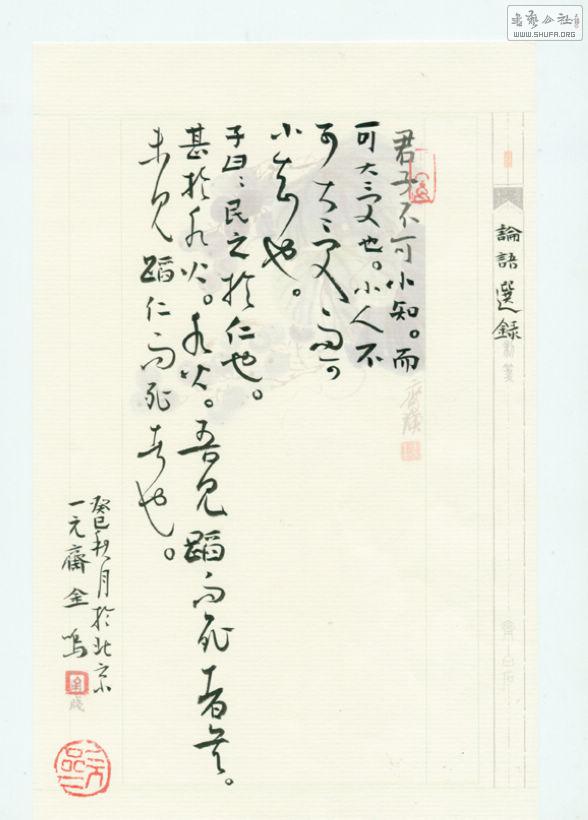 書藝公社
WWW.SHUFA.ORG
論語選錄
君子不可小知。而
可大受也。小人不
可大受而可
小知也。
子曰：民之於仁也。
甚於水火。水火。吾見蹈而死者矣。
未見蹈仁而死者也。
癸巳秋月於北京
一元齋金鳴